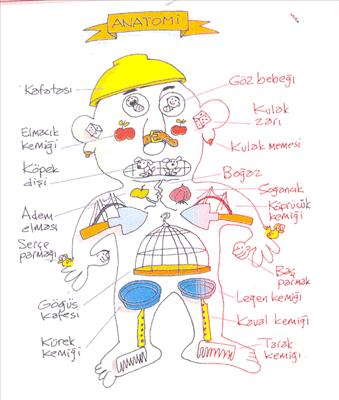 ANATOMİ
Kafatası
Elmacık
kemiği
Köpek
dişi
Adem
elması
Serçe
parmağı
Göğüs
kafesi
Kürek
kemiği
Göz bebeği
Kulak
zarı
Kulak memesi
Boğaz
Soğancık
Köprücük
kemiği
Baş
parmak
Leğen kemiği
Kaval kemiği
Tarak
kemiği